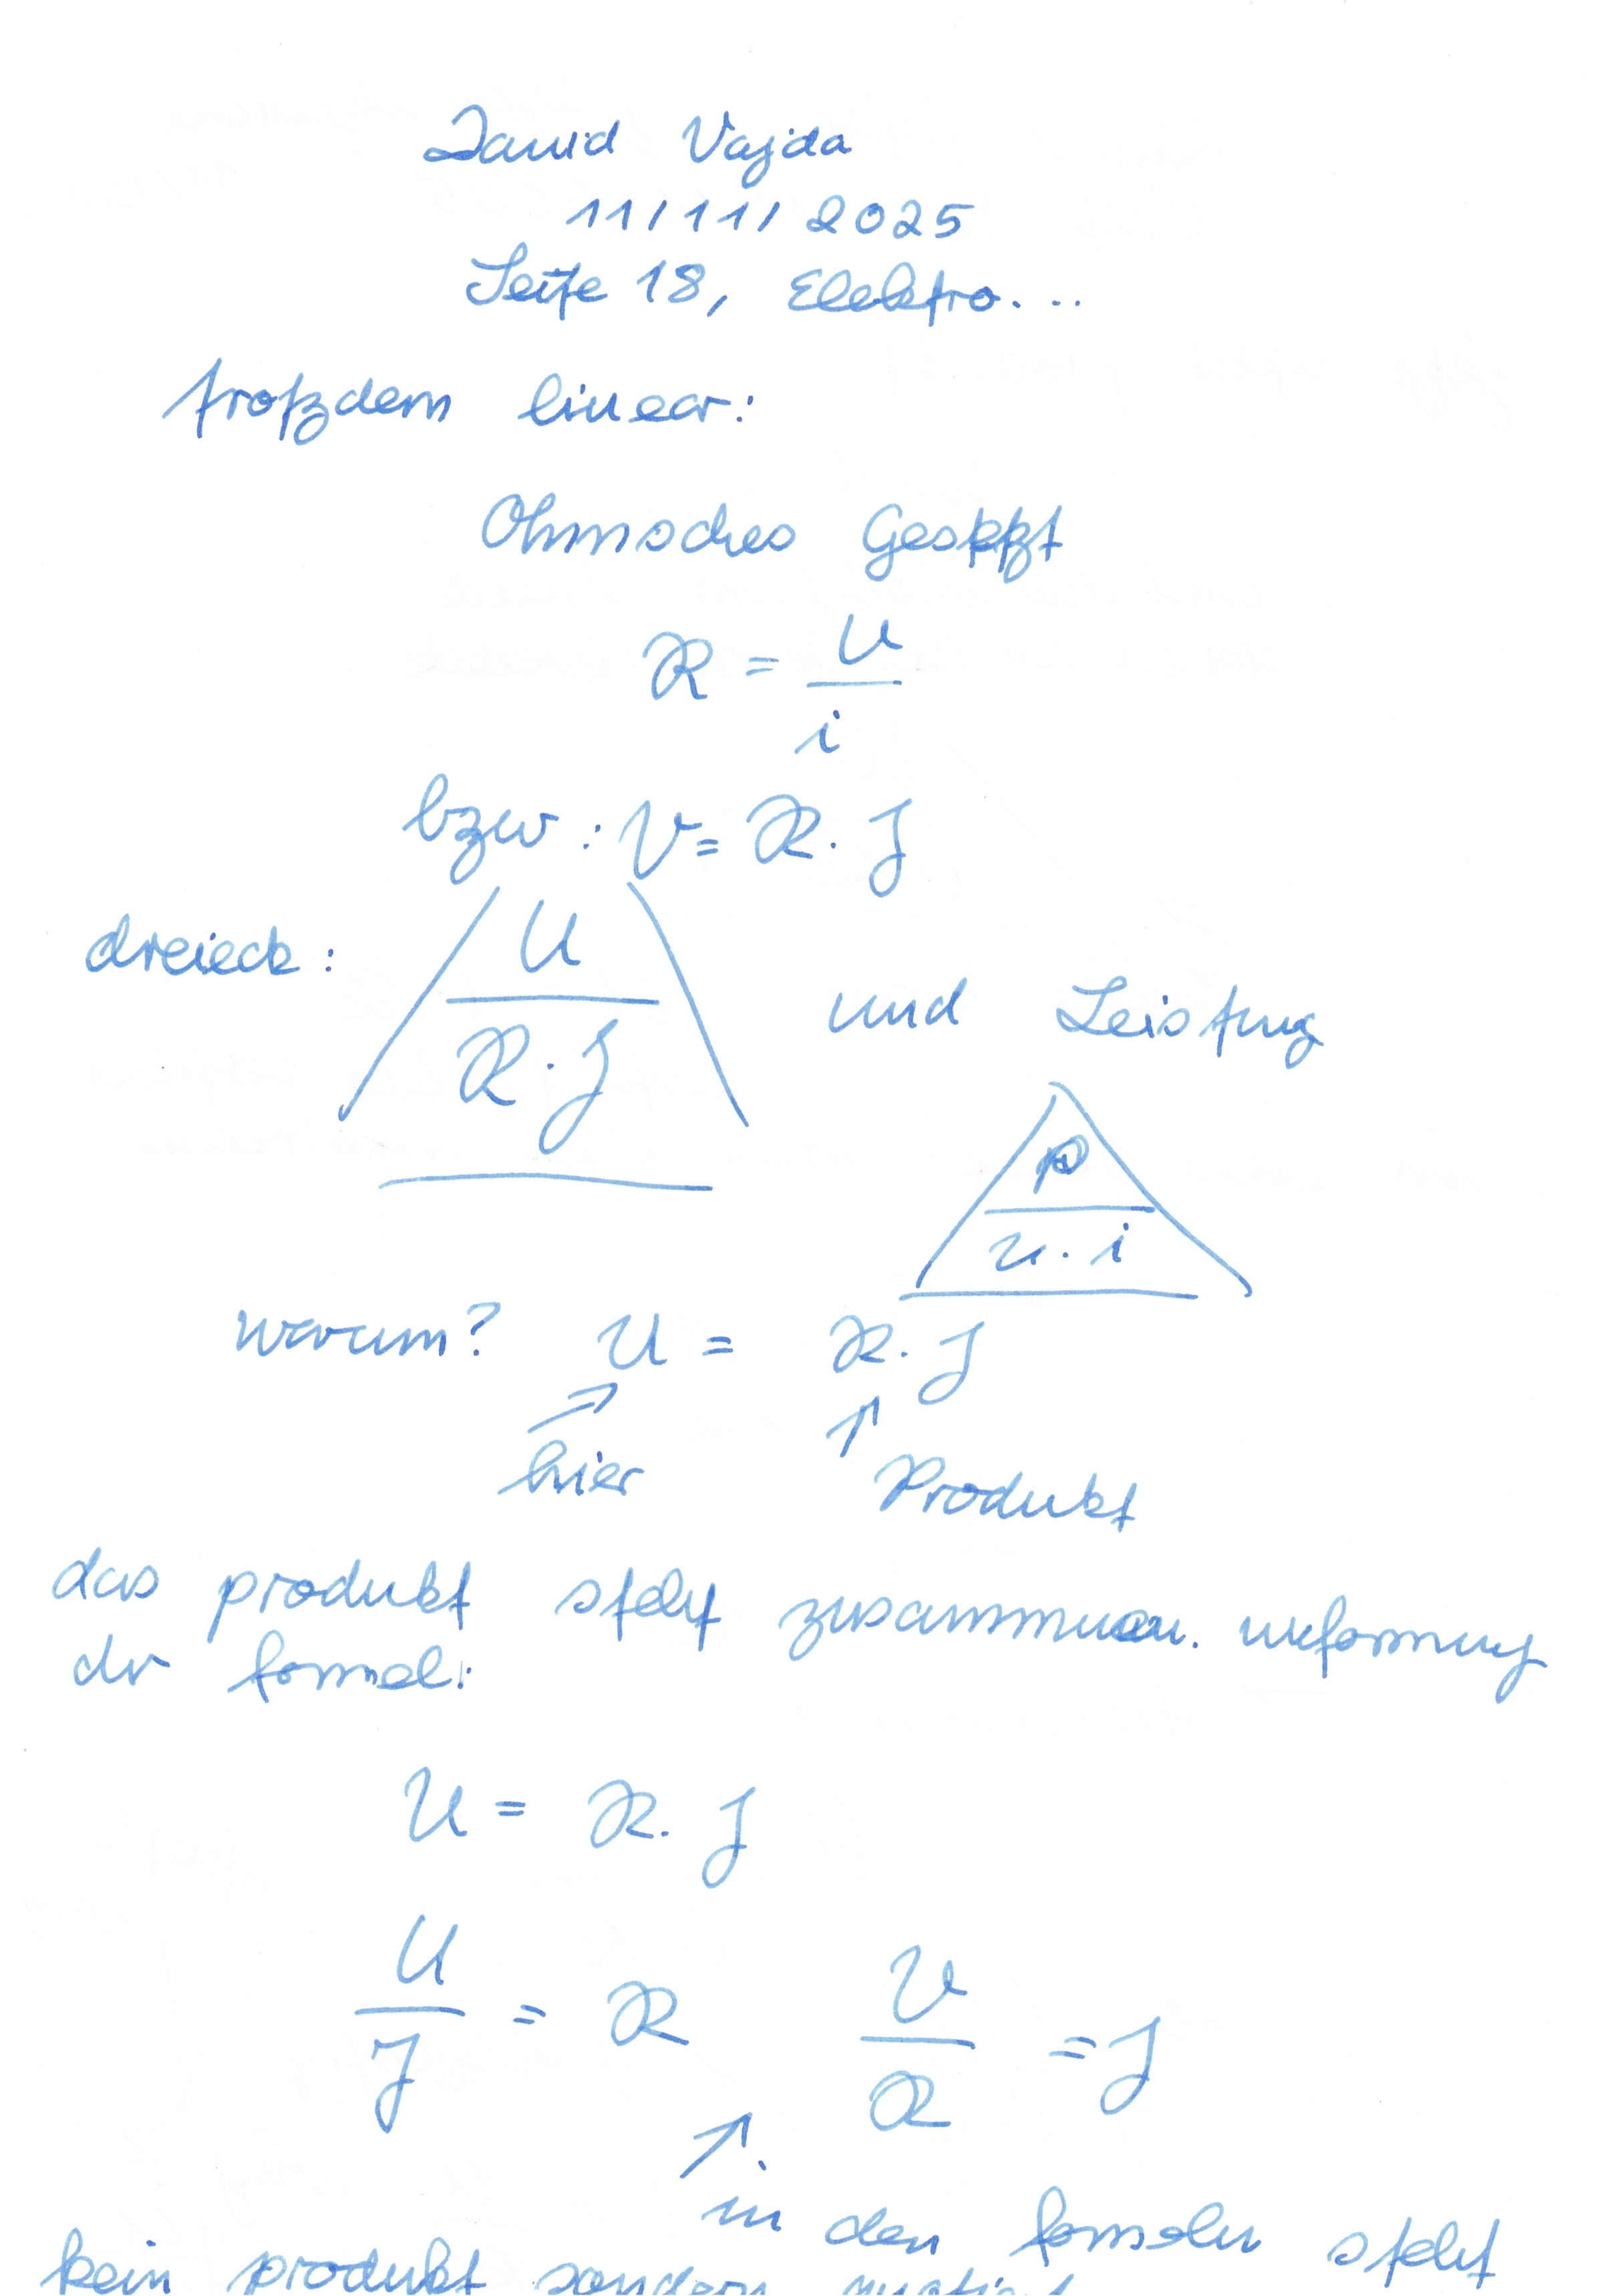 David Vajda
11/11/2025
Seite 18, Elektro...
trotzdem linear:
Ohmsches Gesetzt
R = U / i
bzw: U = R · I
dreieck: U / R · I und Leistung
P / u · i
warum? U = R · I
hier Produkt
das produkt steht zusammen. umformung
der formel:
U = R · I
U / I = R U / R = I
in den formeln steht
kein produkt sondern quotient